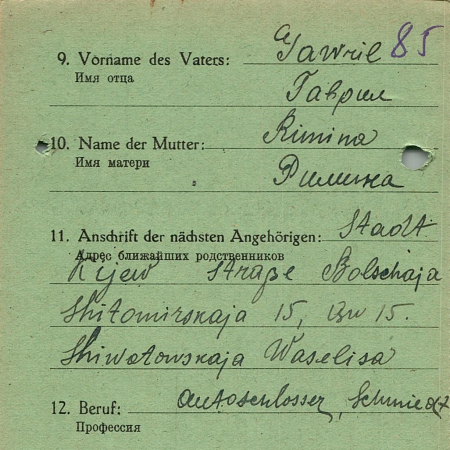 85
9. Vorname des Vaters: Gawril
Имя отца
Гаврил
10. Name der Mutter: Rimina
Имя матери
Римина
11. Anschrift der nächsten Angehörigen: Stadt
Адрес ближайших родственников
Kijew Straße Bolschaja
Shitomirskaja 15, 15.
Shiwotowskaja Waselisa
12. Beruf: Autoschlosser, Schmied
Профессия